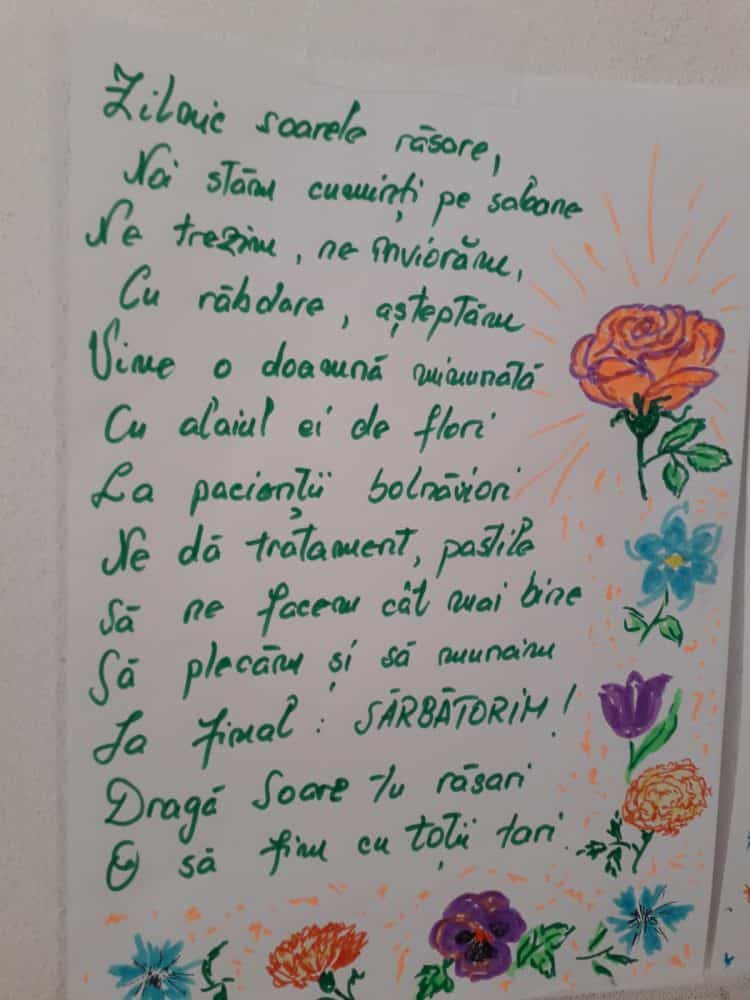 Zilnic soarele răsare,
Noi stăm cuminți pe saloane
Ne trezim, ne înviorăm,
Cu răbdare, așteptăm
Vine o doamnă minunată
Cu alaiul ei de flori
La pacienții bolnăviori
Ne dă tratament, pastile
Să ne facem cât mai bine
Să plecăm și să muncim
La final: SĂRBĂTORIM!
Dragă Soare tu răsari
O să fim cu toții tari.